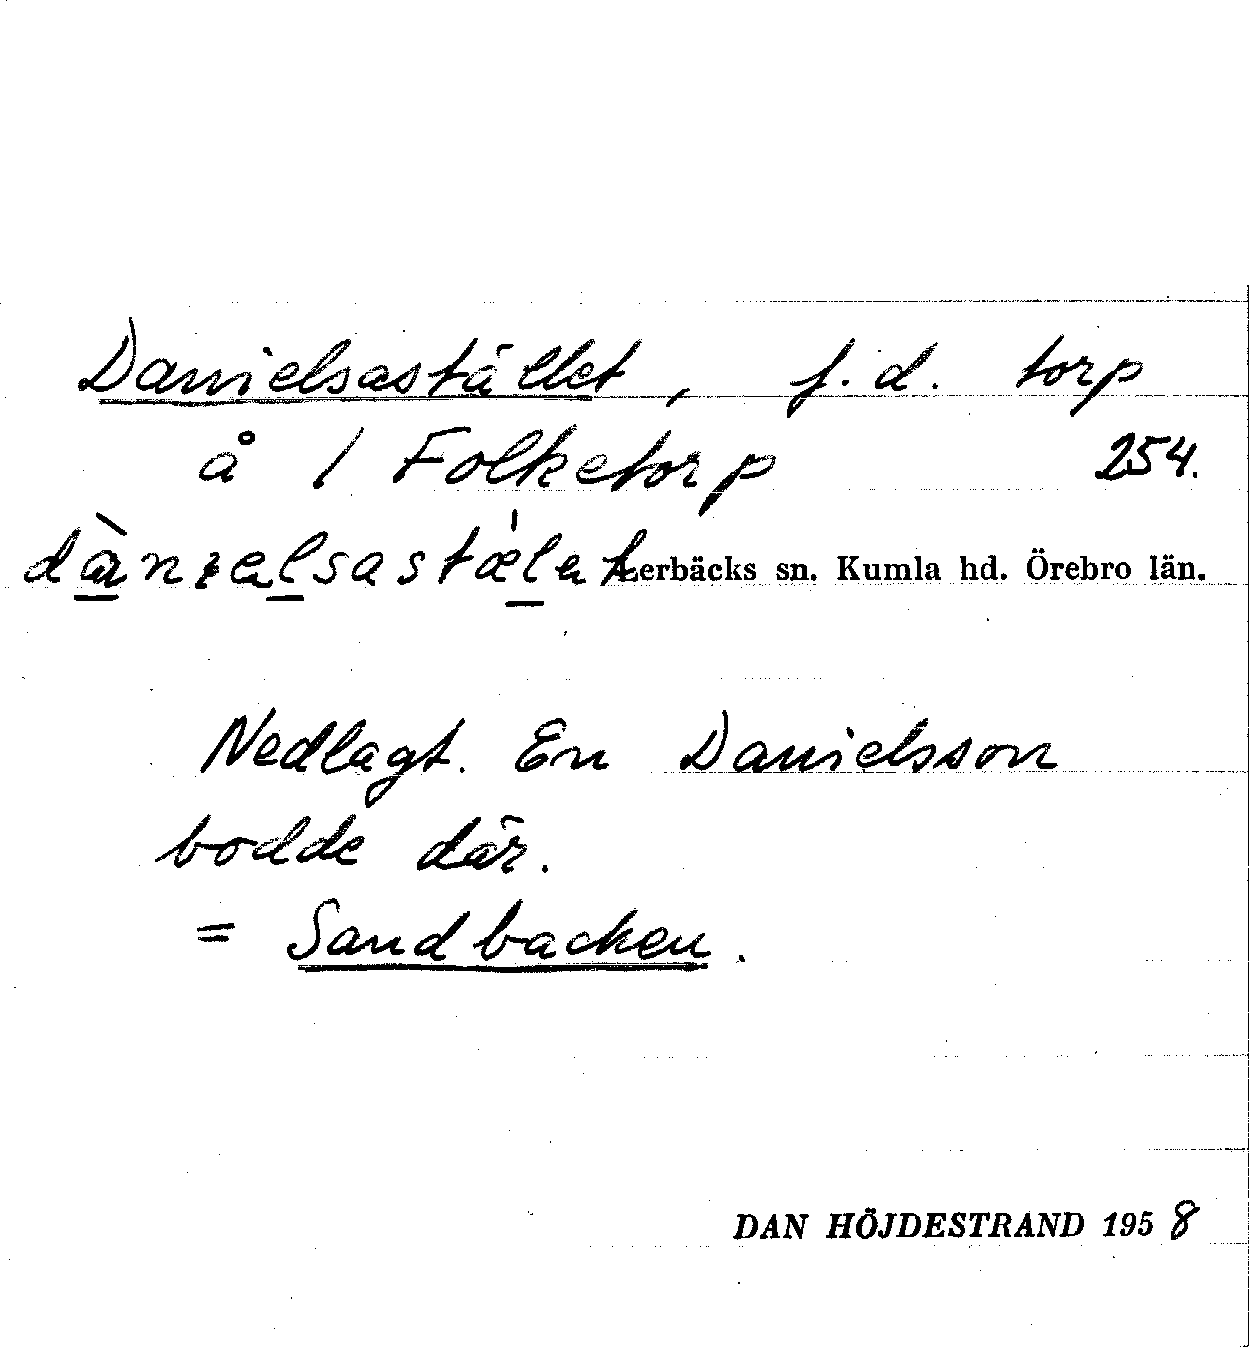 Danielsastället, f.d. torp
å 1 Folketorp 254.
dànɪelsastæ̍let Lerbäcks sn. Kumla hd. Örebro län.
Nedlagt. En Danielsson
bodde där.
= Sandbacken.
DAN HÖJDESTRAND 1958